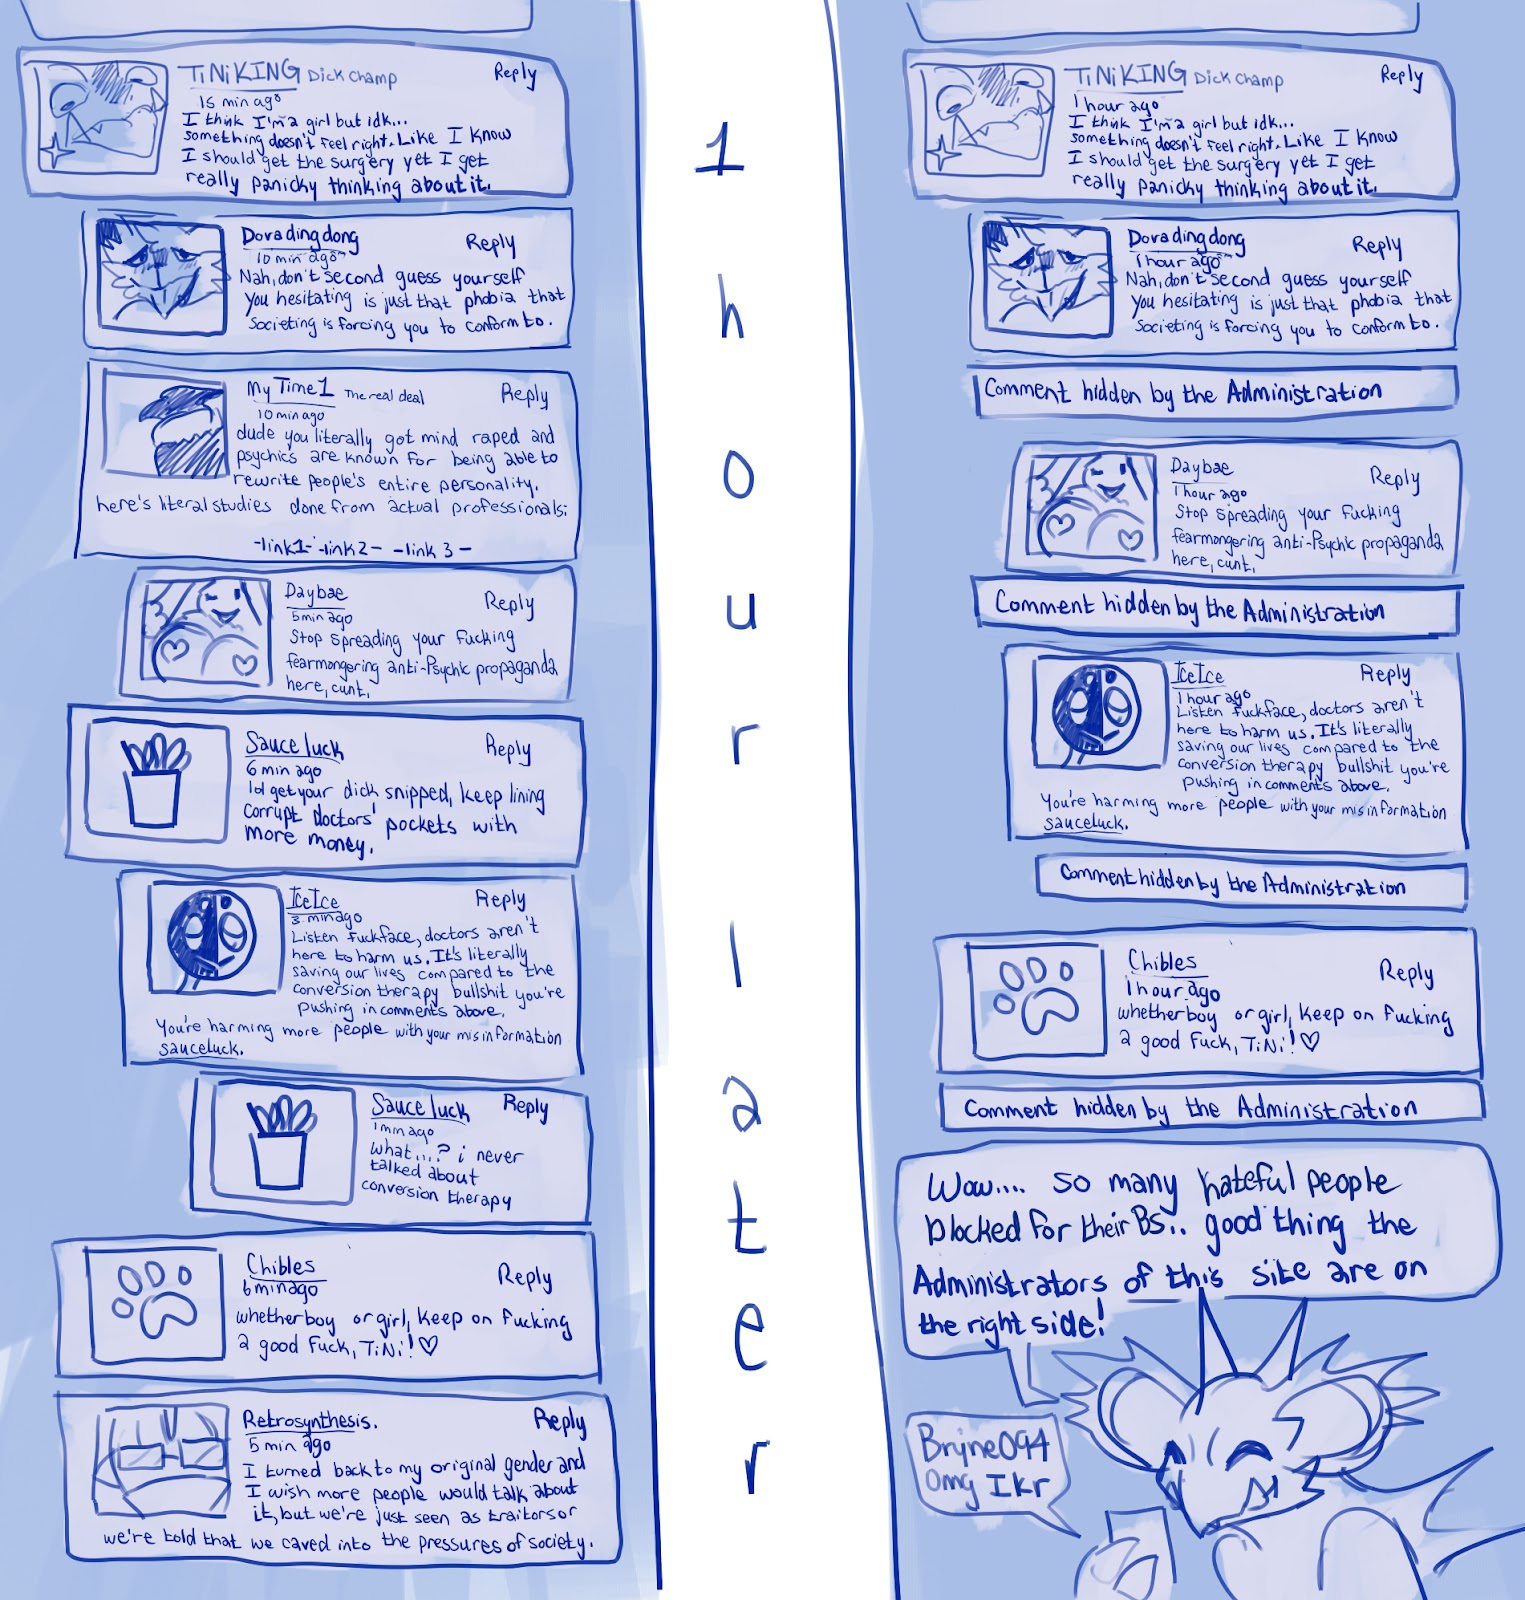 TiNiKING Dick Champ
Reply
15 min ago
I think I'm a girl but idk...
something doesn't feel right. Like I know
I should get the surgery yet I get
really panicky thinking about it.
Dovadingdong
Reply
10 min ago
Nah, don't second guess yourself
You hesitating is just that phobia that
Societing is forcing you to conform to.
My Time1 The real deal
Reply
10 min ago
dude you literally got mind raped and
psychics are known for being able to
rewrite people's entire personality.
here's literal studies done from actual professionals:
-link1- -link2- -link 3-
Daybae
Reply
5 min ago
Stop spreading your fucking
fearmongering anti-Psychic propaganda
here, cunt.
Sauce luck
Reply
6 min ago
lol get your dick snipped, keep lining
corrupt doctors' pockets with
more money.
IceIce
Reply
3 min ago
Listen fuckface, doctors aren't
here to harm us. It's literally
saving our lives compared to the
conversion therapy bullshit you're
pushing in comments above.
You're harming more people with your misinformation
sauceluck.
Sauce luck
Reply
1 min ago
what....? i never
talked about
conversion therapy
Chibles
Reply
6 min ago
whether boy or girl, keep on fucking
a good fuck, TiNi!♡
Retrosynthesis.
Reply
5 min ago
I turned back to my original gender and
I wish more people would talk about
it, but we're just seen as traitors or
we're told that we caved into the pressures of society.
1 hour later
TiNiKING Dick Champ
Reply
1 hour ago
I think I'm a girl but idk...
something doesn't feel right. Like I know
I should get the surgery yet I get
really panicky thinking about it.
Dovadingdong
Reply
1 hour ago
Nah, don't second guess yourself
You hesitating is just that phobia that
Societing is forcing you to conform to.
Comment hidden by the Administration
Daybae
Reply
1 hour ago
Stop spreading your fucking
fearmongering anti-Psychic propaganda
here, cunt.
Comment hidden by the Administration
IceIce
Reply
1 hour ago
Listen fuckface, doctors aren't
here to harm us. It's literally
saving our lives compared to the
conversion therapy bullshit you're
pushing in comments above.
You're harming more people with your misinformation
sauceluck.
Comment hidden by the Administration
Chibles
Reply
1 hour ago
whether boy or girl, keep on fucking
a good fuck, TiNi!♡
Comment hidden by the Administration
Wow.... so many hateful people
blocked for their BS.. good thing the
Administrators of this site are on
the right side!
Bryne094
omg Ikr